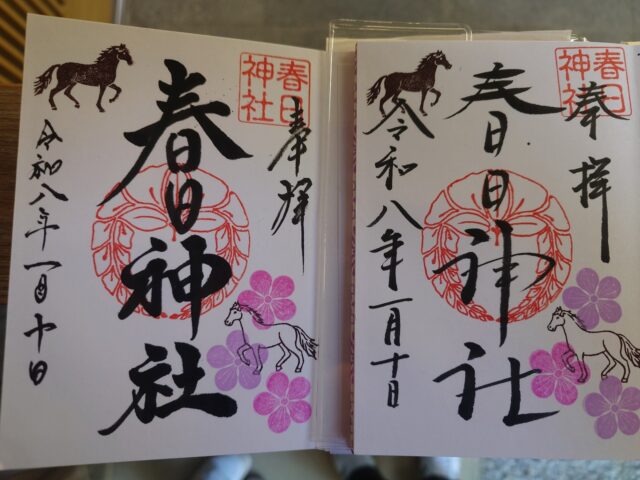 奉拝
春日神社
春日神社
令和八年一月十日
奉拝
春日神社
春日神社
令和八年一月十日